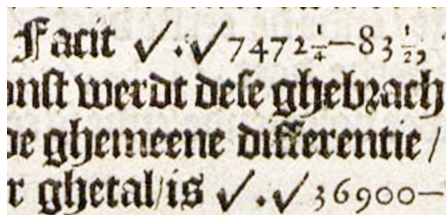 Facit √.√7472¼—83½,
onst werdt dese ghebrach
de ghemeene differentie/
r ghetal/is √.√36900—